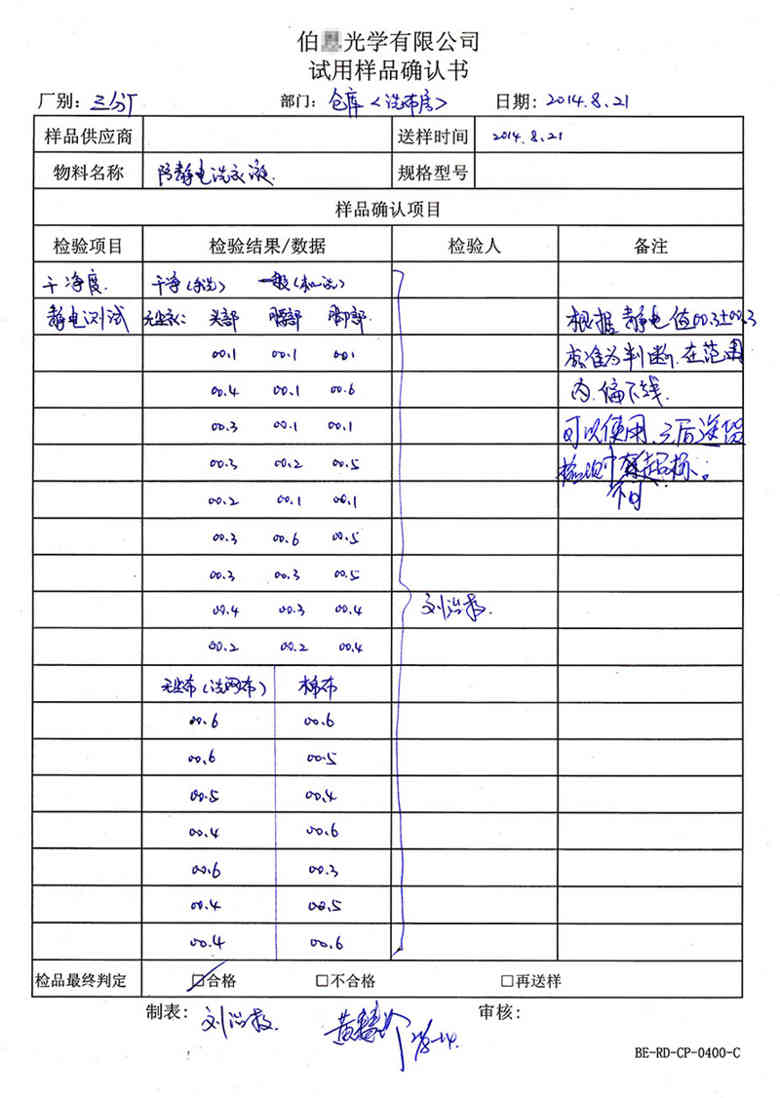 伯 光学有限公司
试用样品确认书
厂别: 三分厂 部门: 仓库<洗布房> 日期: 2014.8.21
样品供应商 送样时间 2014.8.21
物料名称 防静电洗衣液 规格型号
样品确认项目
检验项目 检验结果/数据 检验人 备注
干净度. 干净(手洗) 一般(机洗)
静电测试 无尘衣: 头部 腰部 脚部. 根据静电值00.3±00.3
00.1 00.1 001 标准为判断.在范围
00.4 00.1 00.6 内.偏下线.
00.3 00.1 00.1 可以使用.之后送货
00.3 00.2 00.5 超标。
00.2 00.1 00.1 不可
00.3 00.6 00.5
00.3 00.3 00.5
00.4 00.3 00.4 刘
00.2 00.2 00.4
无尘布(洗网布) 棉布
00.6 00.6
00.6 00.5
00.5 00.4
00.4 00.6
00.6 00.3
00.4 00.5
00.4 00.6
检品最终判定 ☑合格 □不合格 □再送样
制表: 刘 黄 审核:
BE-RD-CP-0400-C